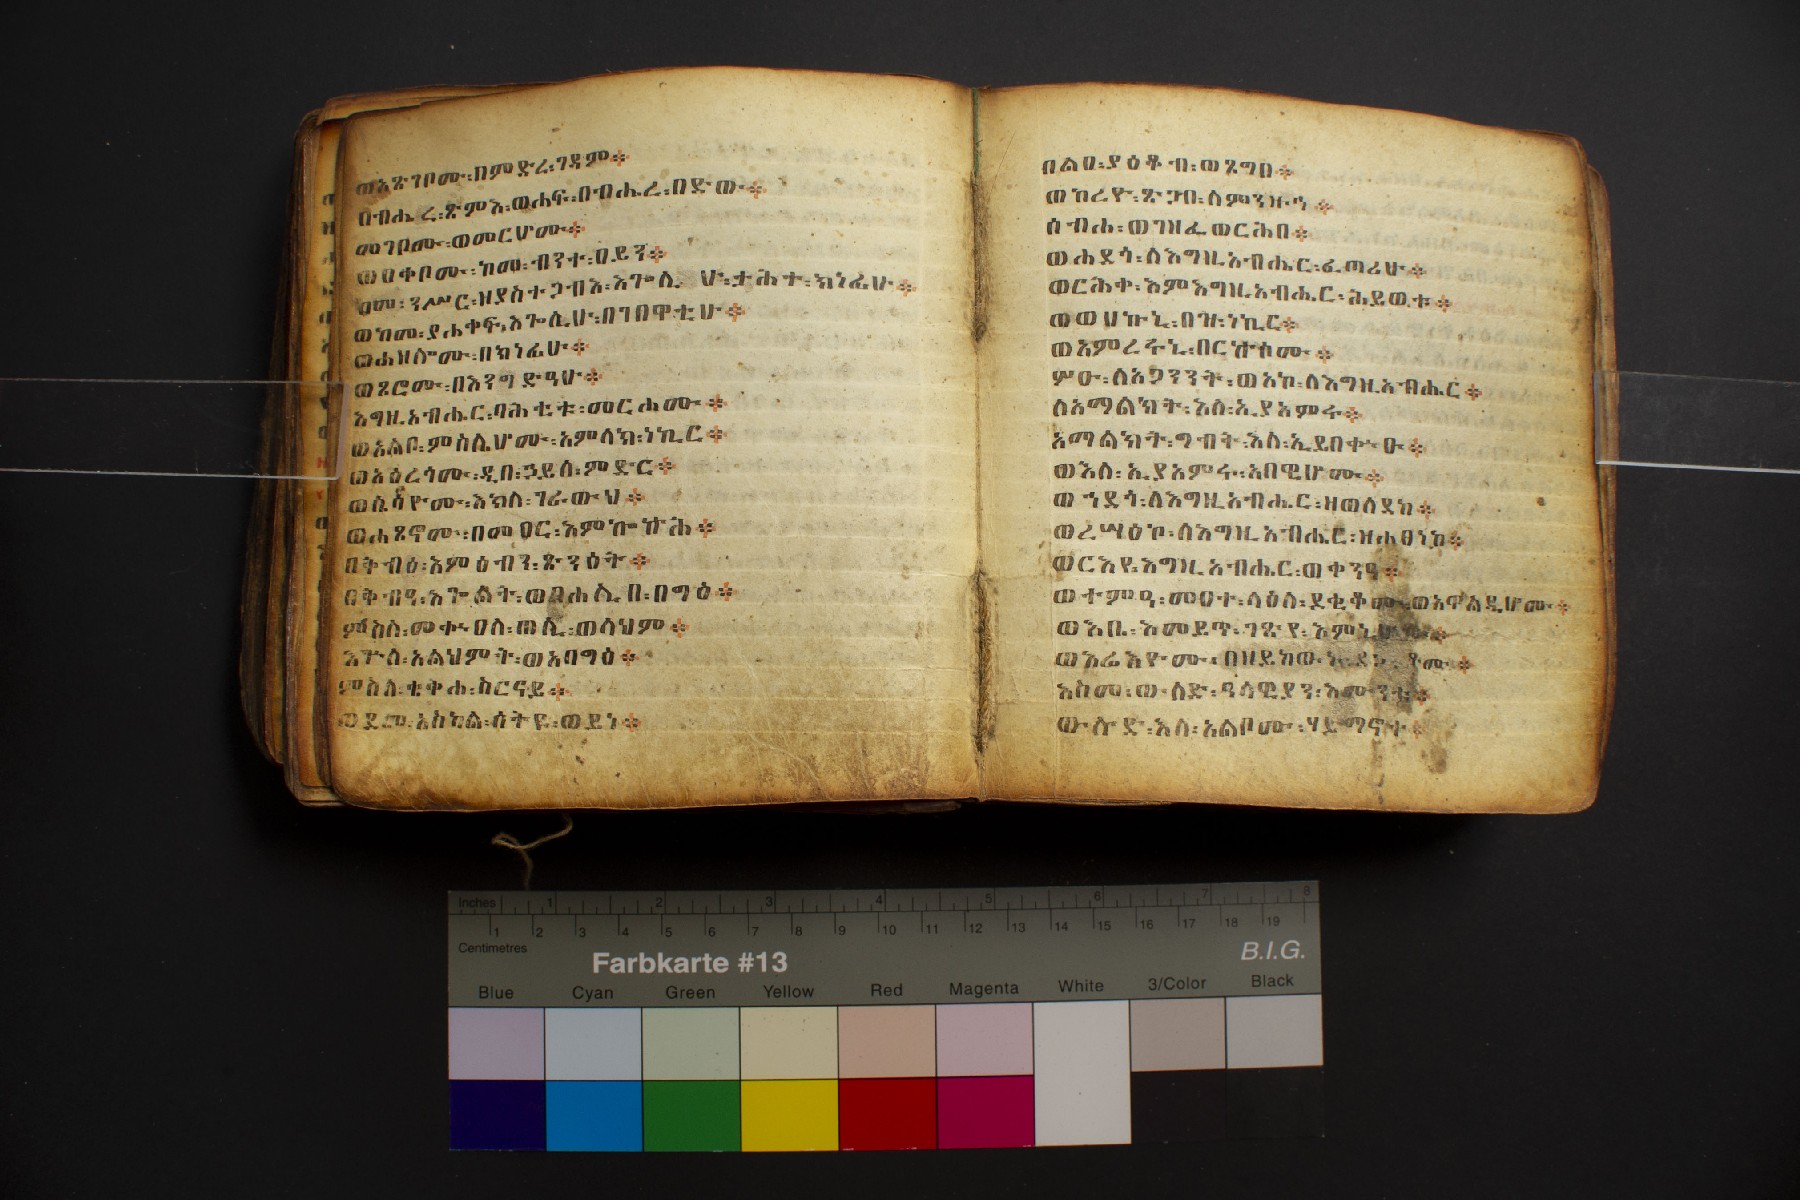 ወአጽገቦሙ፡በምድረ፡ገዳም፨
በብሔረ፡ጽምእ፡ወሐፍ፡በብሔረ፡በድው፨
መገቦሙ፡ወመርሆሙ፨
ወዐቀቦሙ፡ከመ፡ብንተ፡ዐይን፨
ወከመ፡ንሥር፡ዘያስተጋብእ፡እጐሊሁ፡ታሕተ፡ክነፊሁ፨
ወከመ፡ያሐቀፍ፡እጐሊሁ፡በገበዋቲሁ፨
ወሐዘሎሙ፡በክነፊሁ፨
ወጾሮሙ፡በእንግድዓሁ፨
እግዚአብሔር፡ባሕቲቱ፡መርሐሙ፨
ወአልቦ፡ምስሊሆሙ፡አምላክ፡ነኪር፨
ወአዕረጎሙ፡ዲበ፡ኃይለ፡ምድር፨
ወሴሰዮሙ፡እክለ፡ገራውህ፨
ወሐፀኖሙ፡በመዐር፡እምኰኵሕ፨
በቅብዕ፡እምዕብን፡ጽንዕት፨
በቅብዓ፡እጐልት፡ወበሐሊበ፡በግዕ፨
ምስለ፡መቍዐለ፡ጠሊ፡ወላህም፨
እጕለ፡አልህምት፡ወአባግዕ፨
ምስለ፡ቲቅሐ፡ከርናይ፨
ወደመ፡አስካል፡ሰትዩ፡ወይነ፨
በልዐ፡ያዕቆብ፡ወጸግበ፨
ወከረዮ፡ጽጋበ፡ሰምንዙኅ፨
ሰብሐ፡ወገዝፈ፡ወርሕበ፨
ወሐደጎ፡ለእግዚአብሔር፡ፈጣሪሁ፨
ወርሕቀ፡እምእግዚአብሔር፡ሕይወቱ፨
ወወህኩኒ፡በዝ፡ነኪር፨
ወአምረሩኒ፡በርኵሶሙ፨
ሦዑ፡ለአጋንንት፡ወአኮ፡ለእግዚአብሔር፨
ለአማልክት፡እለ፡ኢያአምሩ፨
አማልክት፡ግብት፡እለ፡ኢይበቍዑ፨
ወእለ፡ኢያአምሩ፡አበዊሆሙ፨
ወኀደጎ፡ለእግዚአብሔር፡ዘወለደከ፨
ወረሣዕኮ፡ለእግዚአብሔር፡ዝሐፀነከ፨
ወርእየ፡እግዚአብሔር፡ወቀንዓ፨
ወተምዓ፡መዐተ፡ላዕለ፡ደቂቆሙ፡ወአዋልዲሆሙ፨
ወእቤ፡እመይጥ፡ገጽየ፡እምኔሆሙ፨
ወእሬእዮሙ፡በዘይከውኑ፡ደኃሪቶሙ፨
እስመ፡ውሉድ፡ዓላዊያን፡እሙንቱ፨
ውሉድ፡እለ፡አልቦሙ፡ሃይማኖት፨
Inches
1 2 3 4 5 6 7 8
1 2 3 4 5 6 7 8 9 10 11 12 13 14 15 16 17 18 19
Centimetres
Farbkarte #13
B.I.G.
Blue Cyan Green Yellow Red Magenta White 3/Color Black